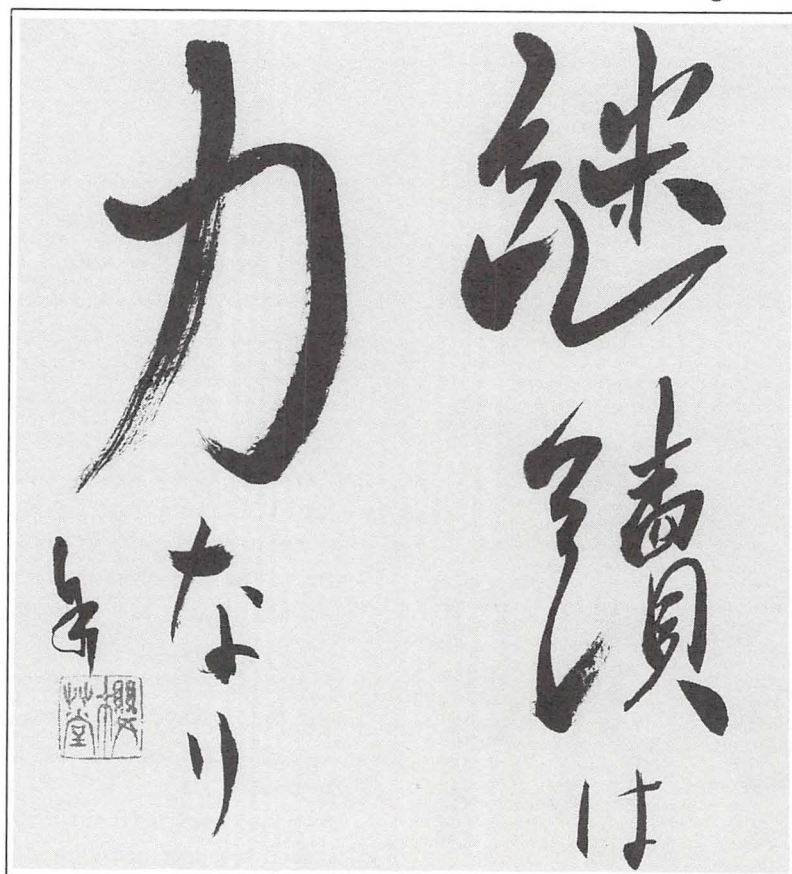 継續は
力なり